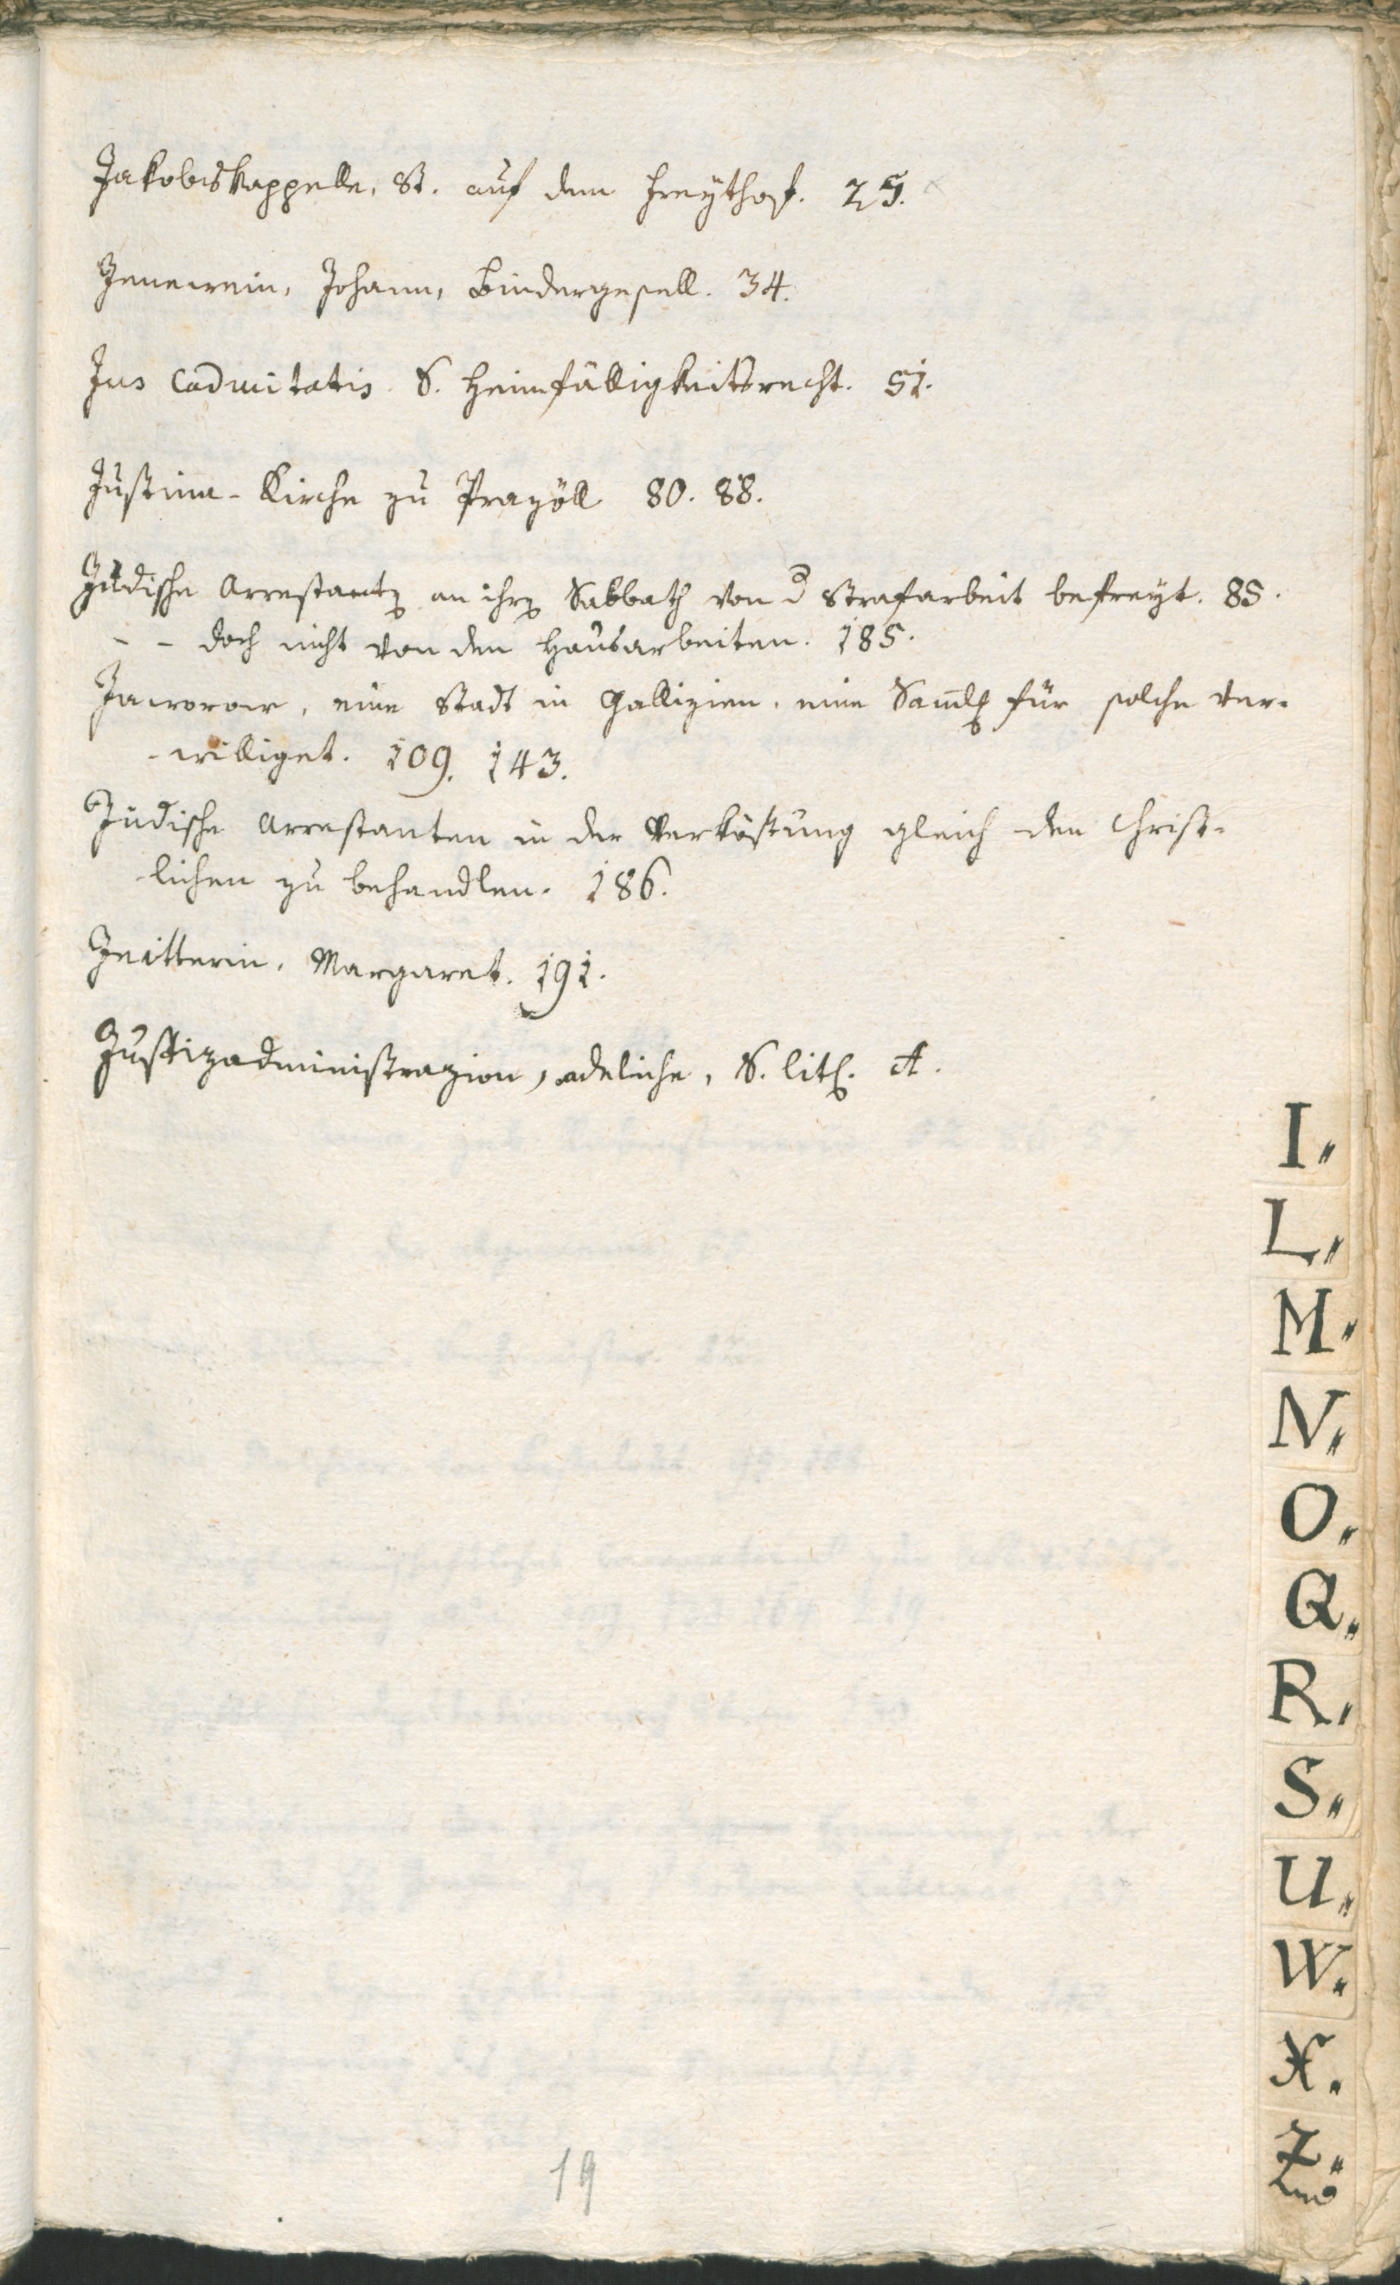 Jakobskappelle, St. auf dem Freythof. 25.
Jenewein, Johann, Bindergesell. 34.
Jus Caducitatis S. Heimfälligkeitsrecht. 51.
Justina-Kirche zu Prazöll 80. 88.
Jüdische Arrestanten an ihren Sabbath von der Strafarbeit befreyt. 85.
- - doch nicht von den Hausarbeiten. 185.
Jaworow, eine Stadt in Gallizien. eine Samlg für solche ver-
-williget. 109. 143.
Jüdische Arrestanten in der Verköstung gleich den Christ-
lichen zu behandlen. 186.
Margaret. 191.
Justizadministrazion, adeliche, S. lit. A.
I.
L.
M.
N.
O.
Q.
R.
S.
U.
W.
X.
Z.
19